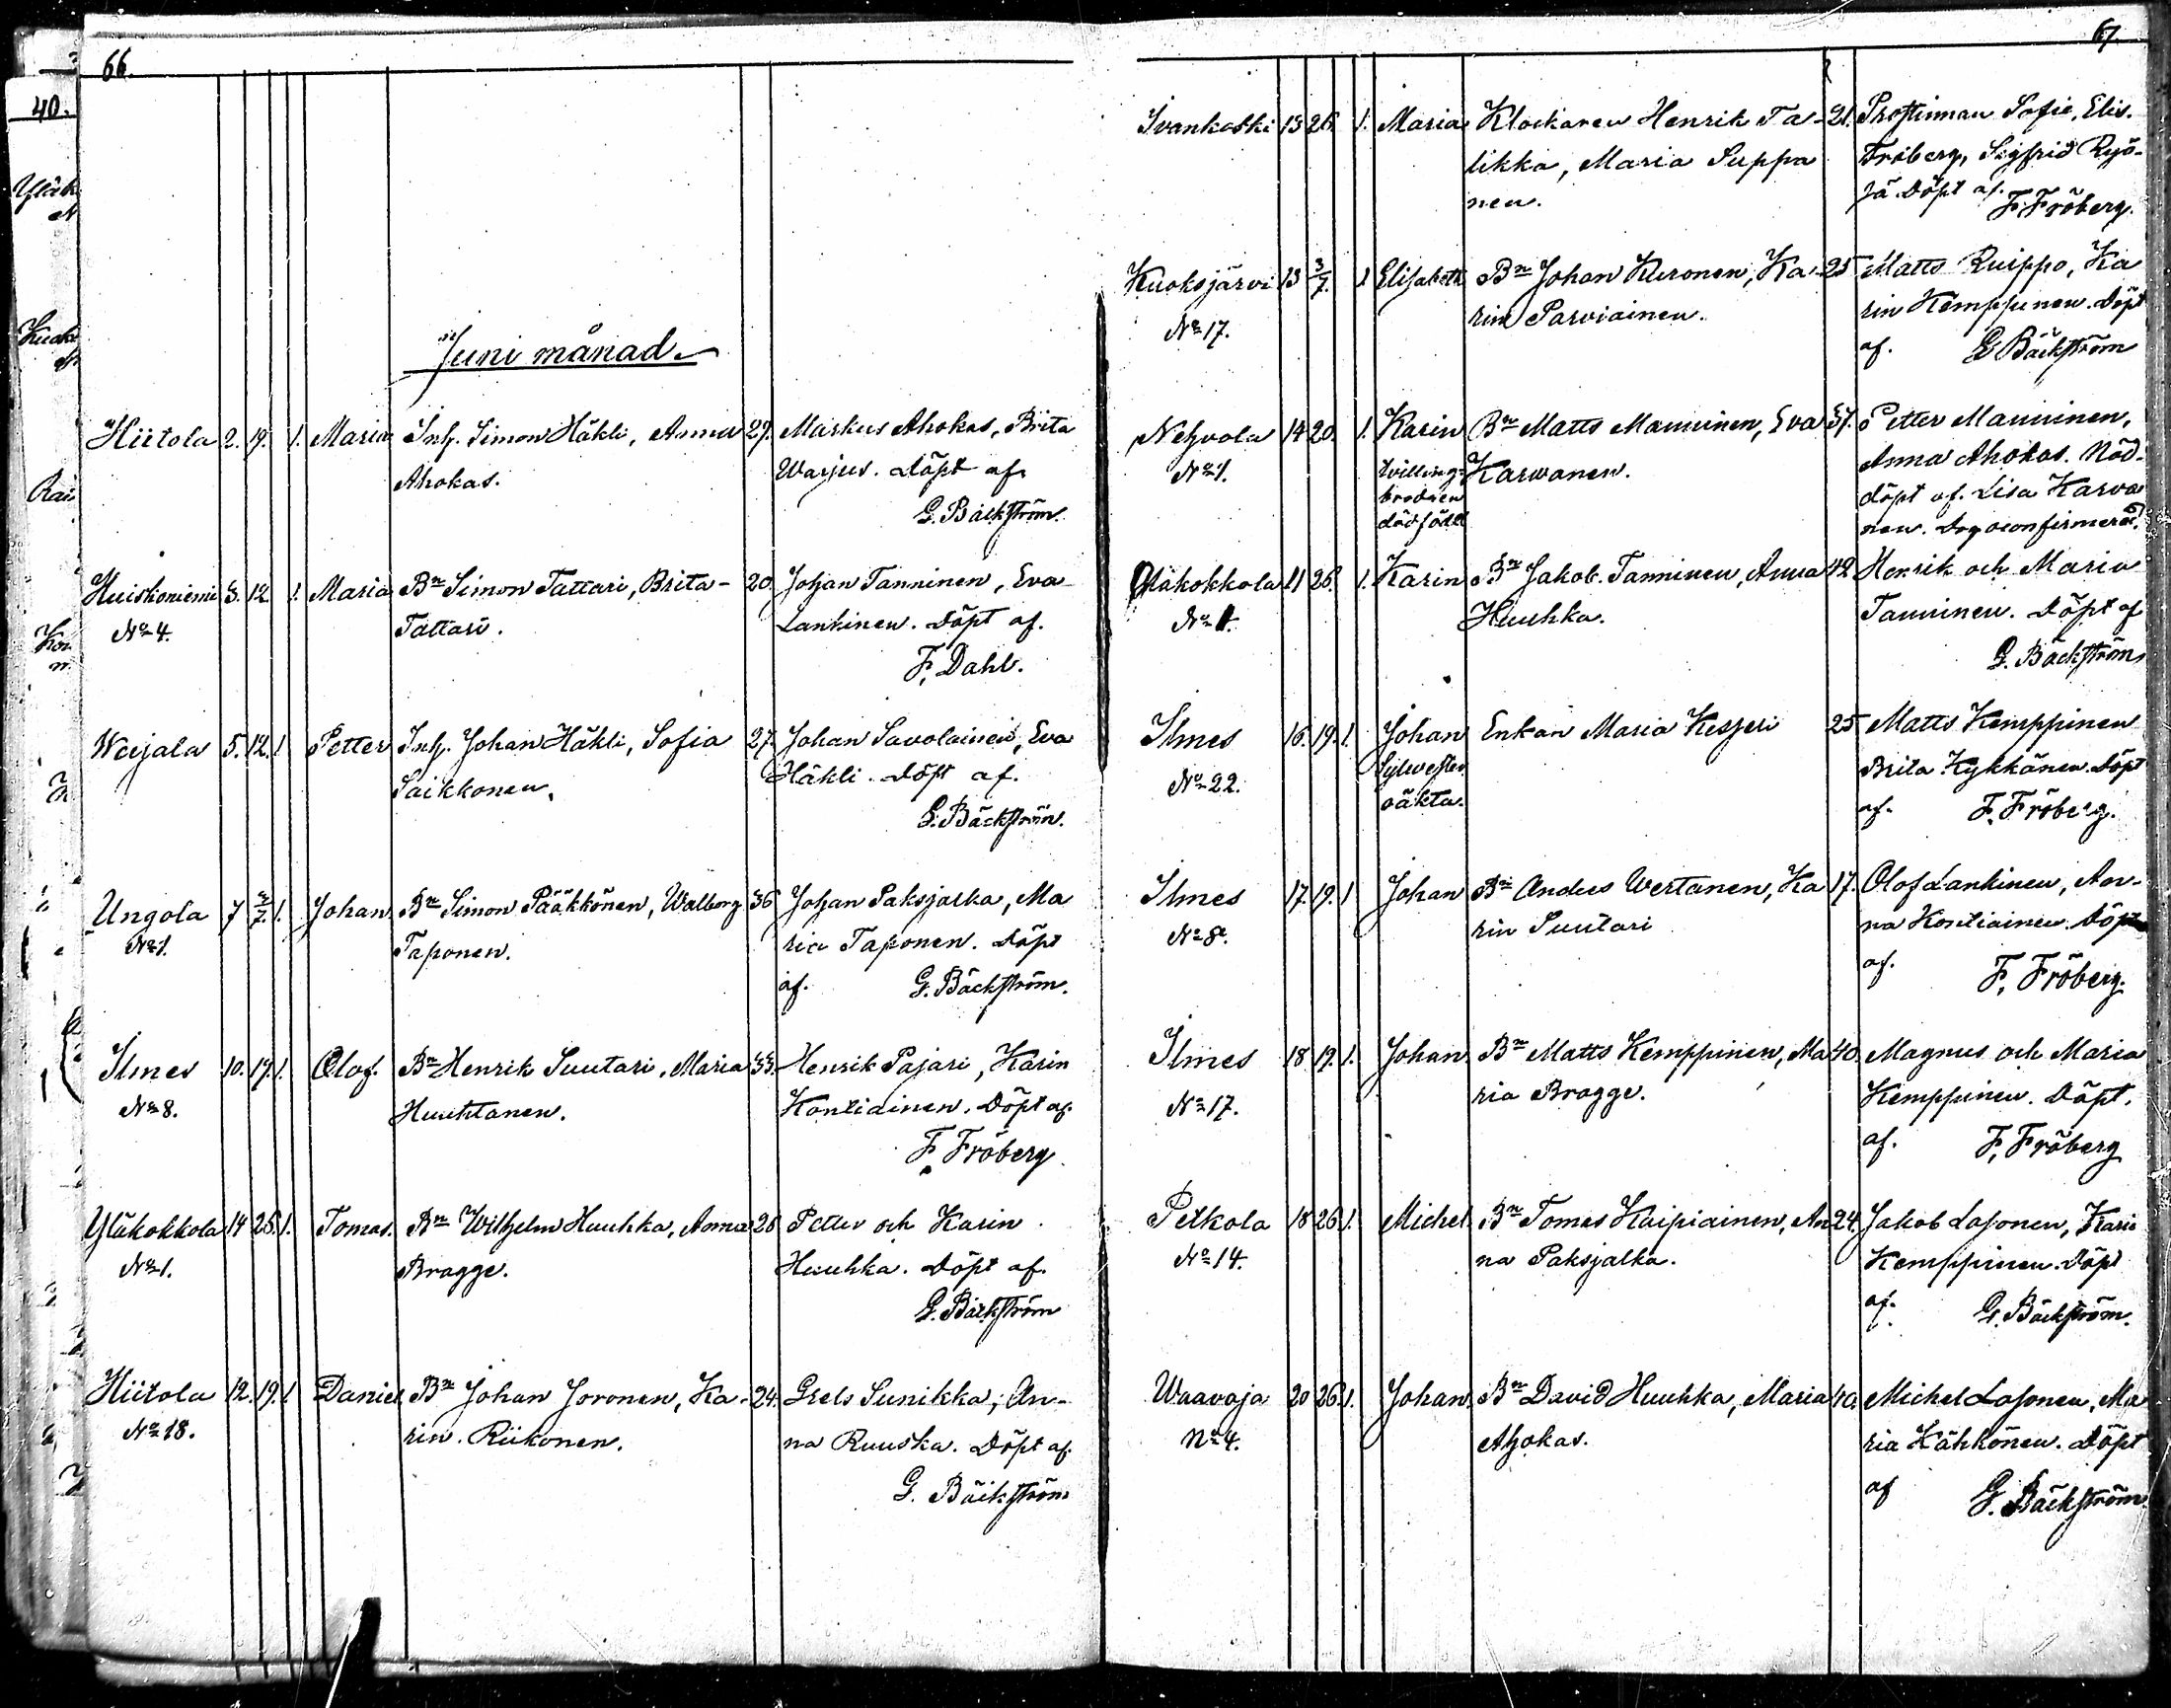 66.
Juni månad.
Hiitola 2. 19. 1. Maria Inh. Simon Häkli, Anna 29. Markus Ahokas, Brita
Ahokas. Warjus. Döpt af.
G. Bäckström.
Huiskoniemi 3. 12. 1. Maria Bn Simon Tattari, Brita 20. Johan Tanninen, Eva
No 4. Tattari. Lankinen. Döpt af.
F. Dahl.
Weijala 5. 12. 1. Petter Inh. Johan Häkli, Sofia 27. Johan Savolainen, Eva
Saikkonen. Häkli. Döpt af.
G. Bäckström.
Ungola 7 3/7. 1. Johan Bn Simon Pääkkönen, Walborg 36 Johan Paksjalka, Ma
No 1. Taponen. ria Taponen. Döpt
af. G. Bäckström.
Ilmes 10. 19. 1. Olof. Bn Henrik Suutari, Maria 33. Henrik Pajari, Karin
No 8. Huuhtanen. Kontiainen. Döpt af.
F. Fröberg
Yläkokkola 14 26. 1. Tomas. Bn Wilhelm Huuhka, Anna 26 Petter och Karin
No 1. Bragge. Huuhka. Döpt af.
G. Bäckström
Hiitola 12. 19. 1. Daniel Bn Johan Joronen, Ka- 24. Grels Sunikka, An-
No 18. rin Riikonen. na Ruuska. Döpt af.
G. Bäckström
67.
Ivankoski 13 26. 1. Maria Klockaren Henrik Ta- 21. Prostinnan Sofie, Elis.
likka, Maria Suppa Fröberg, Sigfrid Ryö-
nen. jä. Döpt af.
F. Fröberg.
Kuoksjärvi 13 3/7. 1 Elisabeth Bn Johan Kuronen, Ka- 25 Matts Ruippo, Ka
No 17. rin Parviainen. rin Kemppinen. Döpt
af. G Bäckström
Nehvola 14 20. 1. Karin Bn Matts Manninen, Eva 37. Petter Manninen,
No 1. tvilling- Karwanen. Anna Ahokas. Nöd-
brodren döpt af. Lisa Karva
dödfödd nen. Dop confirmerat.
Yläkokkola 11 26. 1. Karin Bn Jakob Tanninen, Anna 42 Henrik och Maria
No 1. Huuhka. Tanninen. Döpt af
G. Bäckström
Ilmes 16. 19. 1. Johan Enkan Maria Kesseri 25 Matts Kemppinen
No 22. Sylvester Brita Kykkänen. Döpt
oäkta. af. F. Fröberg.
Ilmes 17. 19. 1 Johan Bn Anders Wertanen, Ka 17. Olof Lankinen, An-
No 8. rin Suutari na Kontiainen. Döpt
af. F. Fröberg.
Ilmes 18 19. 1. Johan Bn Matts Kemppinen, Ma 40. Magnus och Maria
No 17. ria Bragge. Kemppinen. Döpt.
af. F. Fröberg
Petkola 18 26 1. Michel Bn Tomas Kaipiainen, An 24. Jakob Lasonen, Karin
No 14. na Paksjalka. Kemppinen. Döpt
af. G. Bäckström.
Waavoja 20 26. 1. Johan Bn David Huuhka, Maria 40. Michel Lasonen, Ma
No 4. Ahokas. ria Hähkönen. Döpt
af G. Bäckström